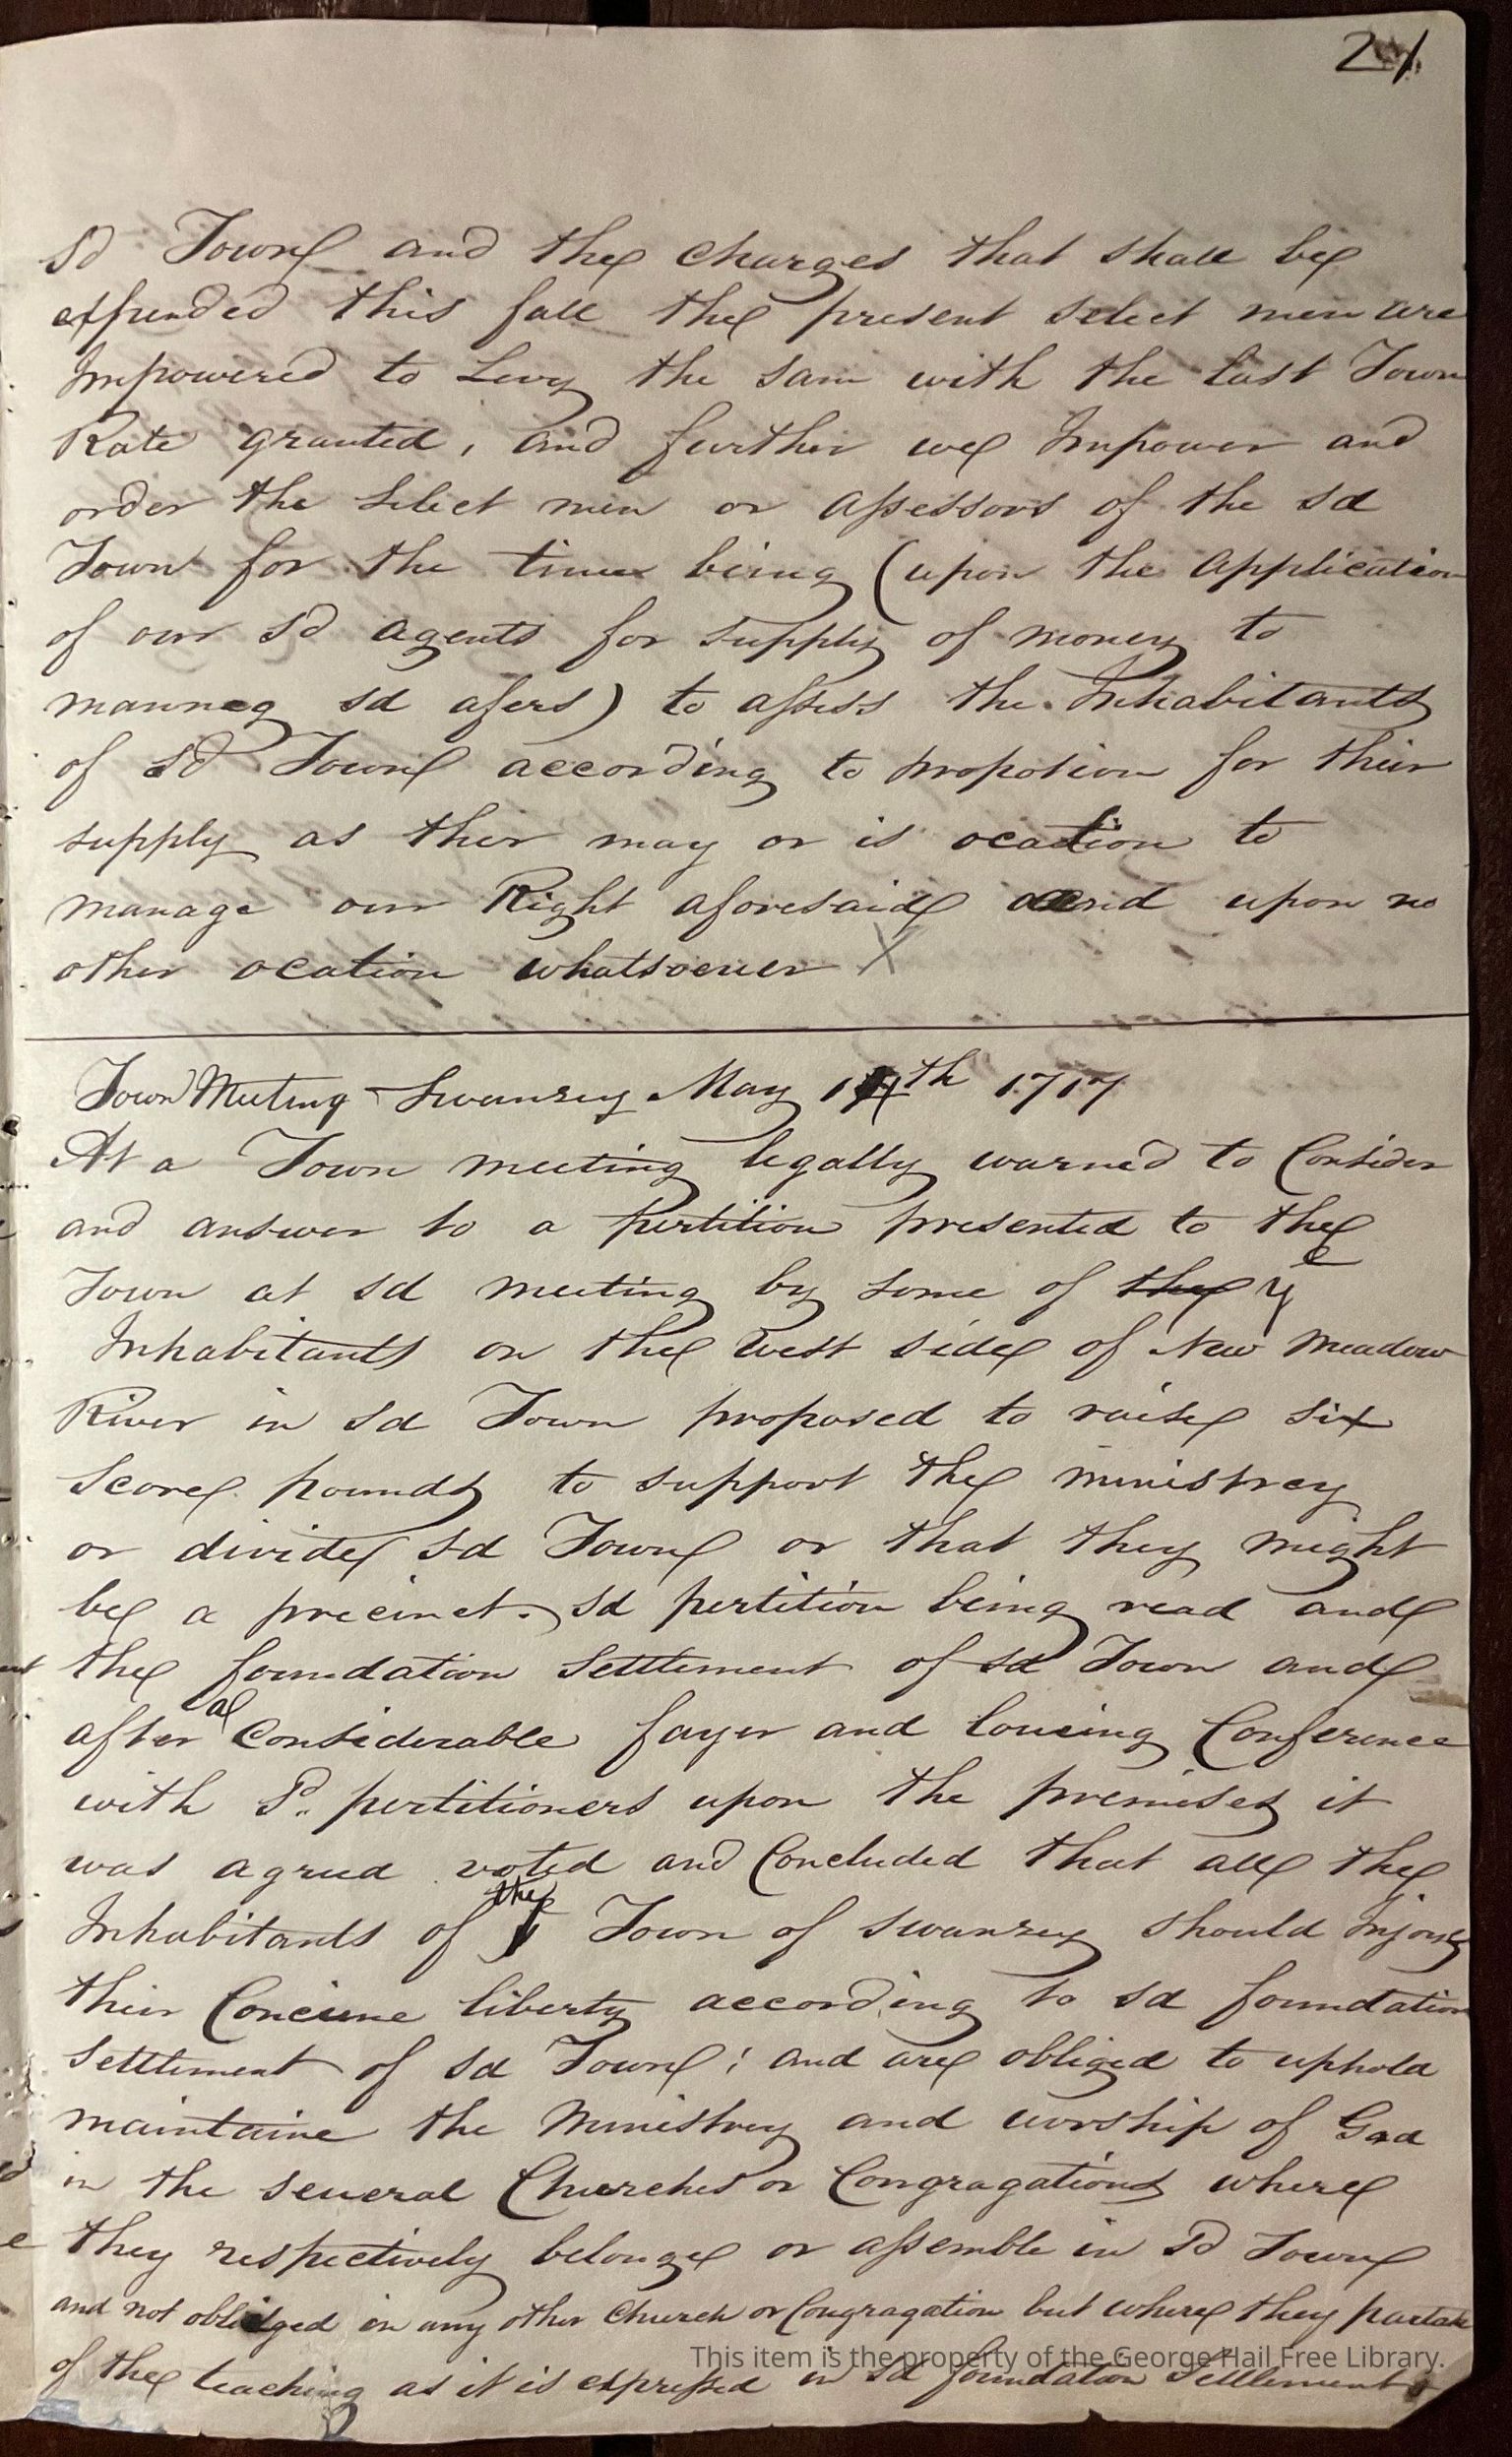 21
Sd Towne and the Charges that shall be
expended this fall the present select men are
Impowered to Levy the sam with the last Town
Rate granted, and further we Impower and
order the Select men or Assessors of the sd
Town for the time being (upon the application
of our sd agents for supply of money to
manneg sd afers) to assess the Inhabitants
of sd Towne according to propotion for their
supply as ther may or is ocation to
manage our Right aforesaid and upon no
other ocation whatsoever X
Town Meeting Swansey May th 1717
At a Town meeting legally warned to Consider
and answer to a pertition presented to the
Town at sd meeting by some of the ye
Inhabitants on the west side of New Meadow
River in sd Town proposed to raise six
score pounds to support the ministrey
or divide sd Towne or that they might
be a precinct. sd pertition being read and
the foundation Settlement of sd Town and
after a Considerable fayer and loueing Conference
with Sd. pertitioners upon the premises it
was agreed voted and Concluded that all the
Inhabitants of the Town of Swansey should Injoy
their liberty according to sd foundation
settlement of sd Towne: and are obliged to uphold
maintaine the Ministrey and worship of God
in the seueral Churches or Congragations where
they respectively belonge or assemble in Sd Towne
and not oblidged in any other Church or Congragation but where they partak
of the teaching as it is expressed in sd foundation Settlement
This item is the property of the George Hail Free Library.